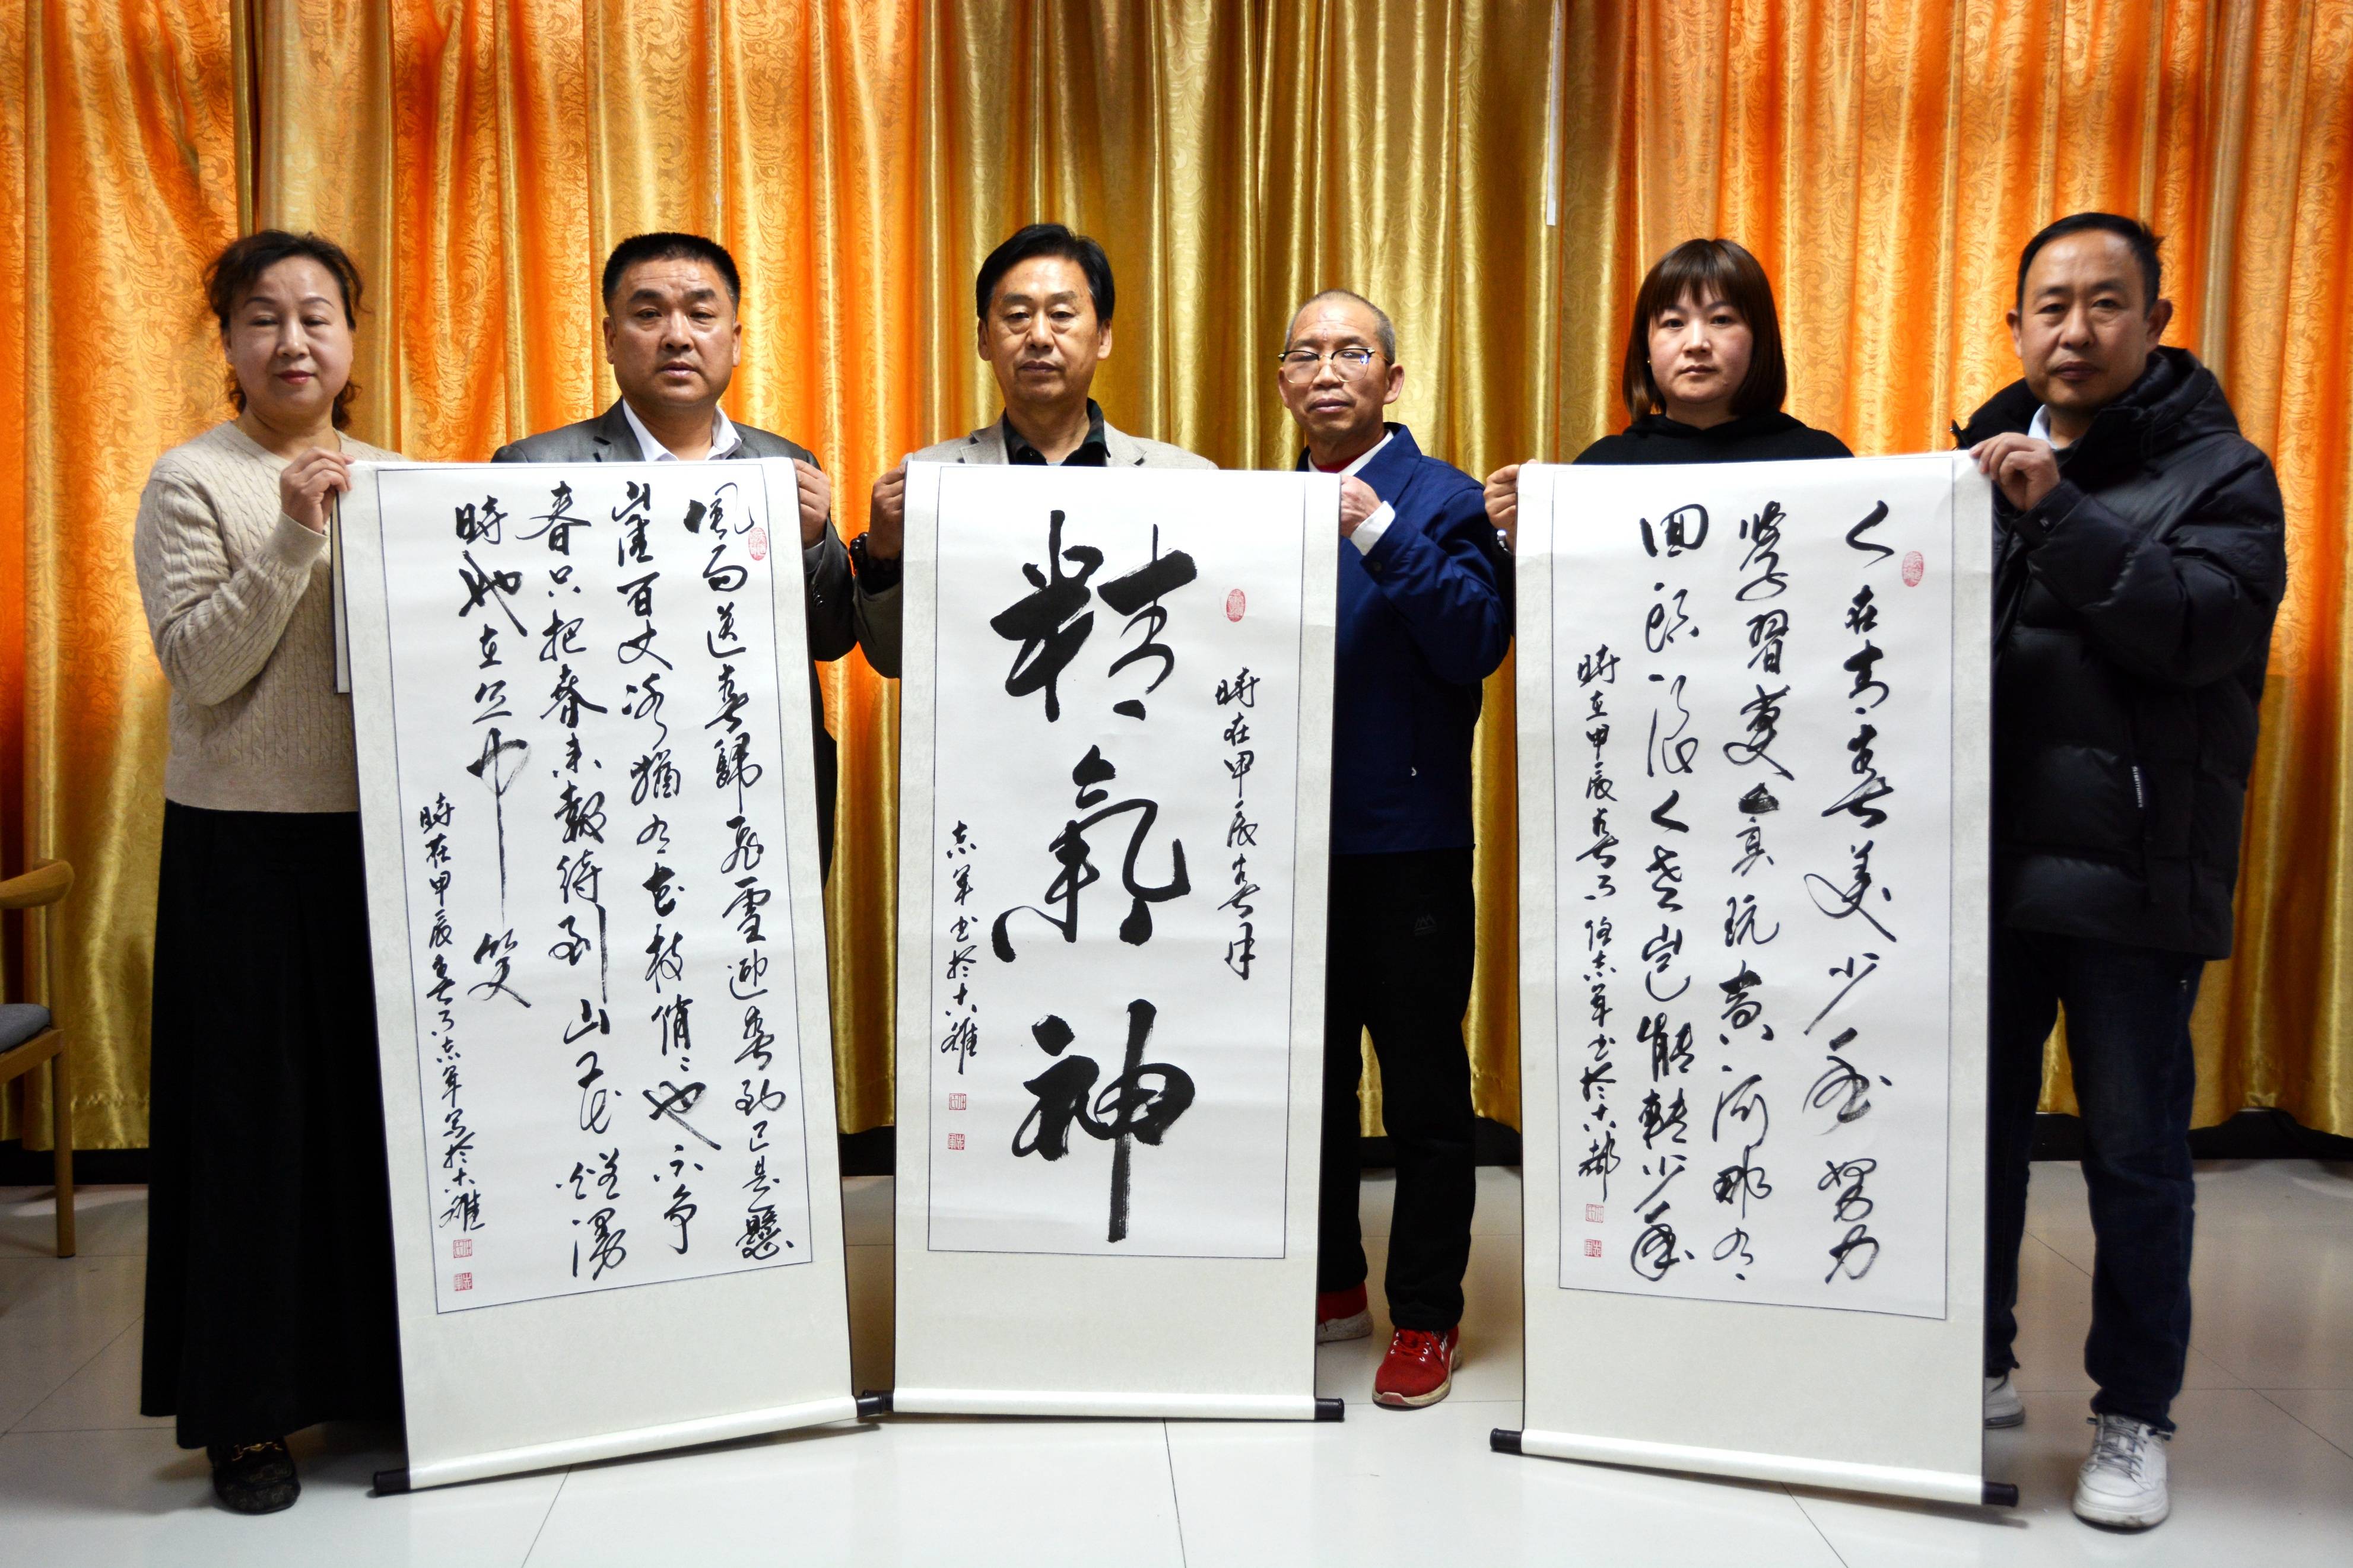 風雨送春歸飛雪迎春到已是懸
崖百丈冰猶有花枝俏〻也不争
春只把春來報待到山花爛漫
時她在丛中笑
時在甲辰春月志軍写於
時在甲辰春月
精氣神
志軍书於
人在青春美少年努力
學習莫貪玩黄河那有
回頭浪人老豈能轉少年
時在甲辰春月任志軍书於